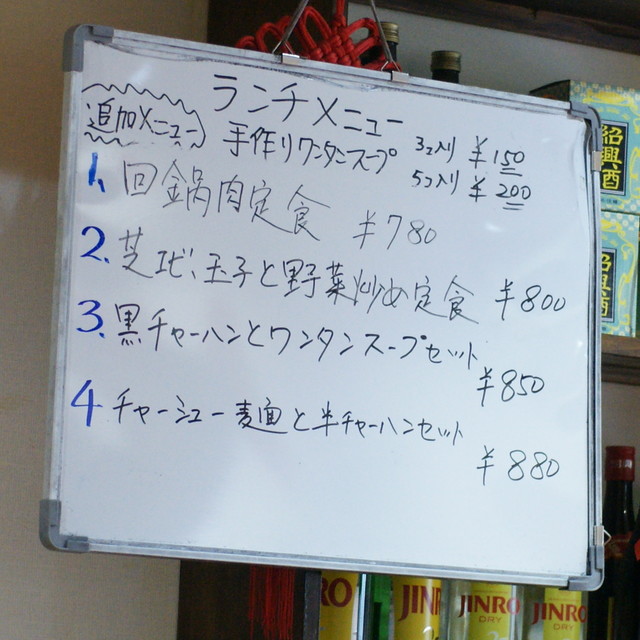 ランチメニュー
追加メニュー
手作りワンタンスープ 3コ入り ¥150
5コ入り ¥200
1. 回鍋肉定食 ¥780
2. 芝エビ、玉子と野菜炒め定食 ¥800
3. 黒チャーハンとワンタンスープセット
¥850
4 チャーシュー麺と半チャーハンセット
¥880
紹興酒
紹興酒
RO
JIN
JINRO
DRY
JINRO
DRY